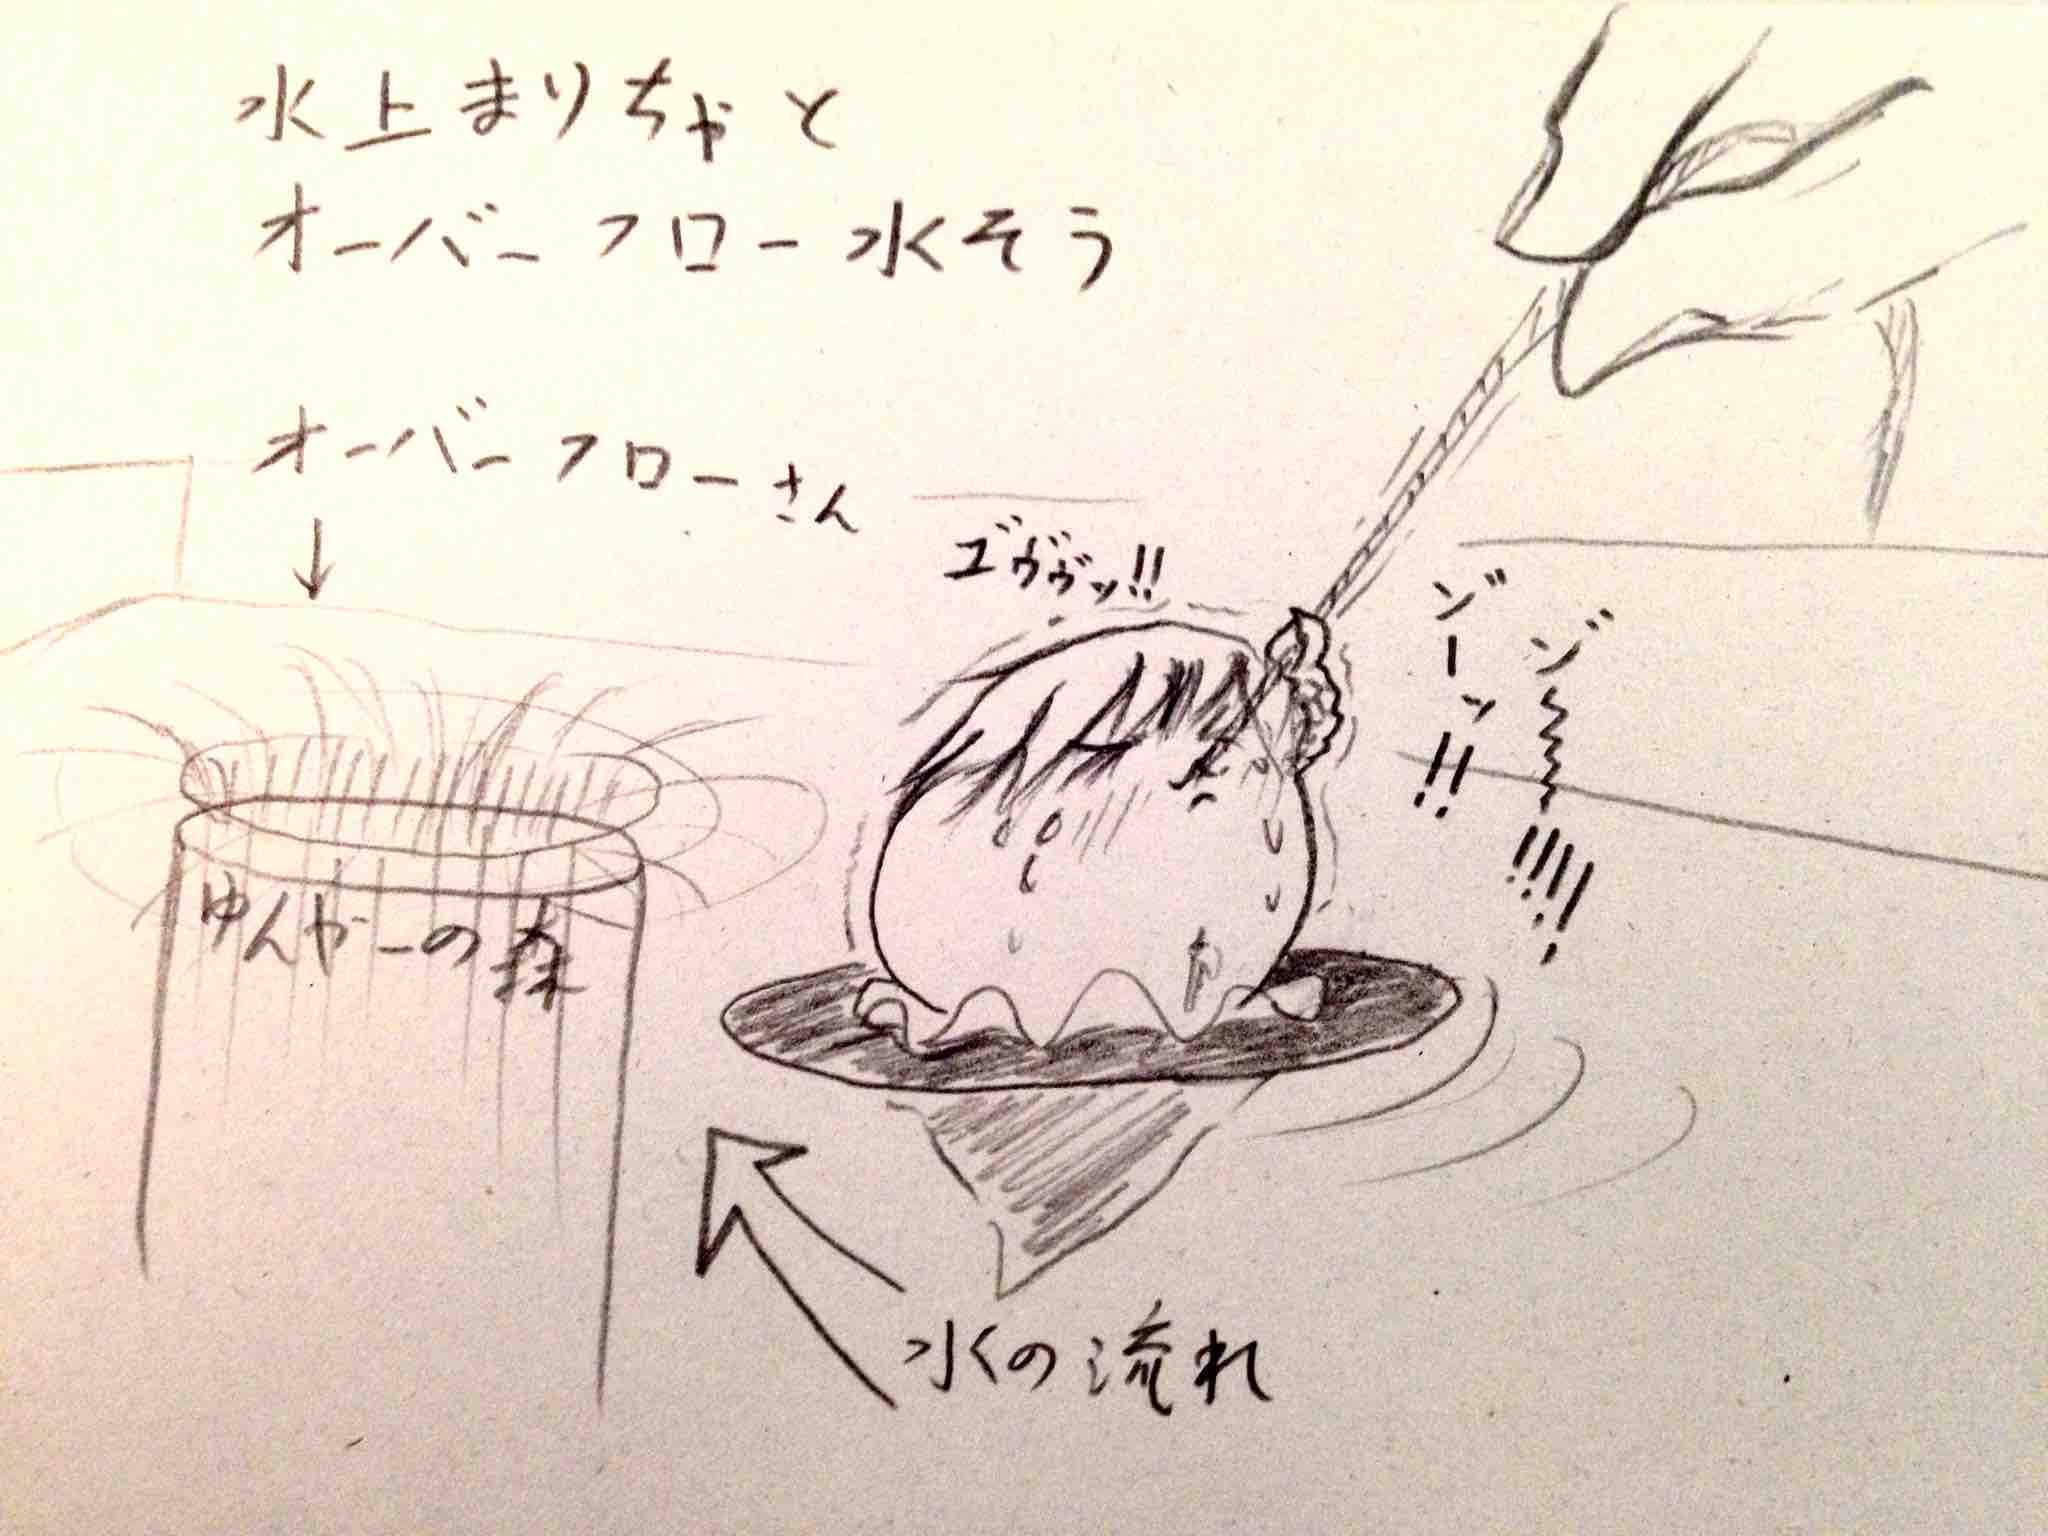 水上まりちゃと
オーバーフロー水そう
オーバーフローさん
ゆんやーの森
ゾーッ!!
水の流れ